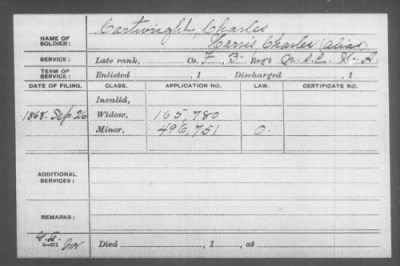 NAME OF SOLDIER: Cartwright, Charles
Harris Charles (alias)
SERVICE: Late rank, Co. F, B, Reg't
TERM OF SERVICE: Enlisted , 1 Discharged , 1
DATE OF FILING. CLASS. APPLICATION NO. LAW. CERTIFICATE NO.
Invalid,
1868. Sep 26 Widow, 165,780
Minor, 496,751 O.
ADDITIONAL SERVICES:
REMARKS:
Died , 1 , at